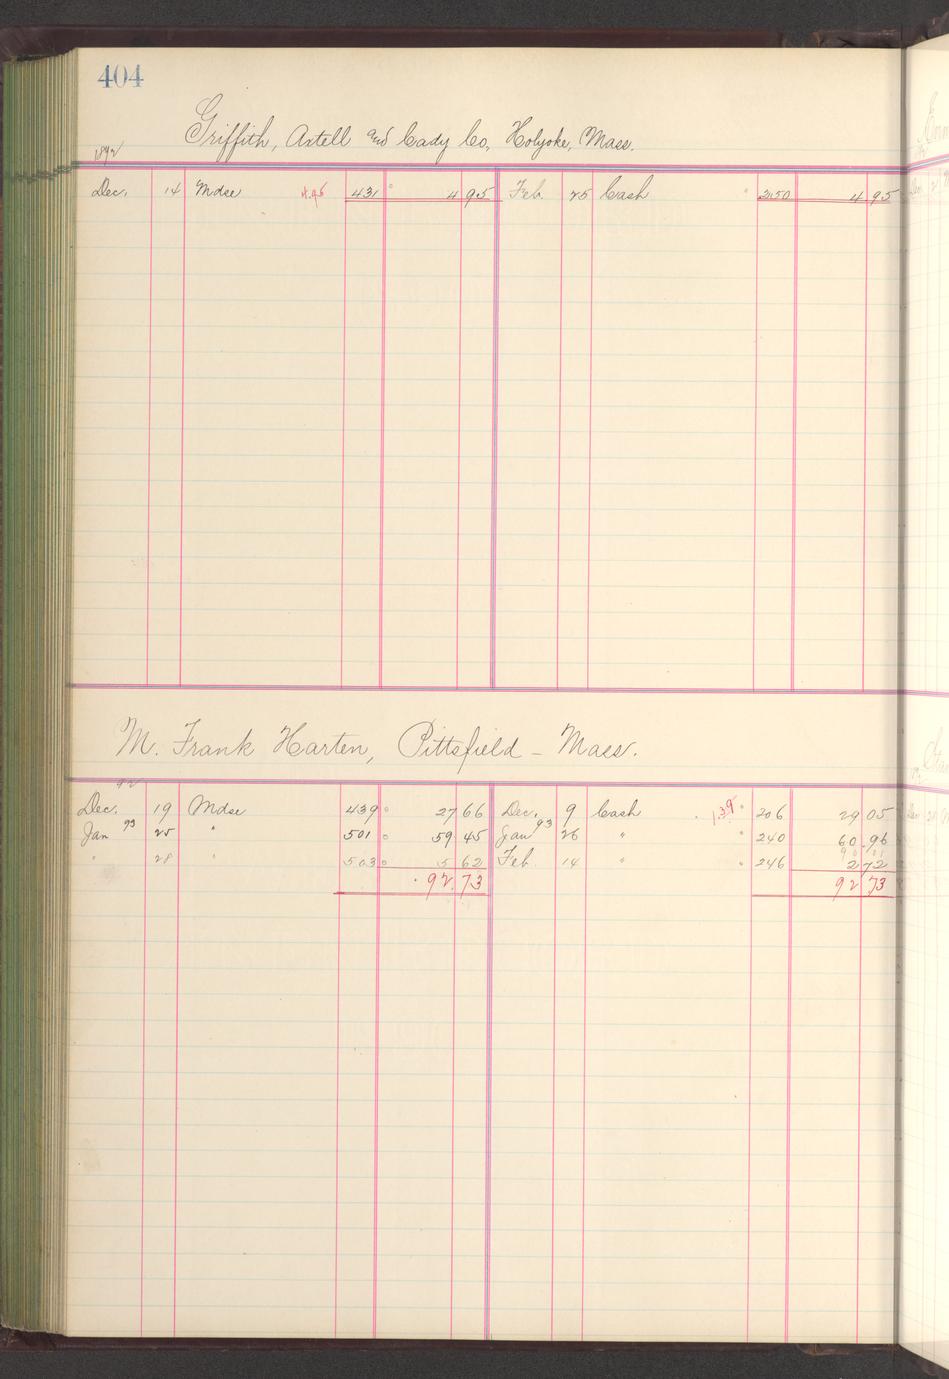 404
Griffith, Axtell and Cady Co, Holyoke, Mass.
1892
Dec. 14 Mdse 4.95 431 4 95 Feb. 25 Cash 250 4 95
M. Frank Harten, Pittsfield - Mass.
92
Dec. 19 Mdse 439 27 66 Dec. 9 Cash 1.39 206 29 05
Jan 93 25 " 501 59 45 Jan 93 26 " 240 60 96
" 28 " 503 5 62 Feb. 14 " 246 2 72
92 73 92 73